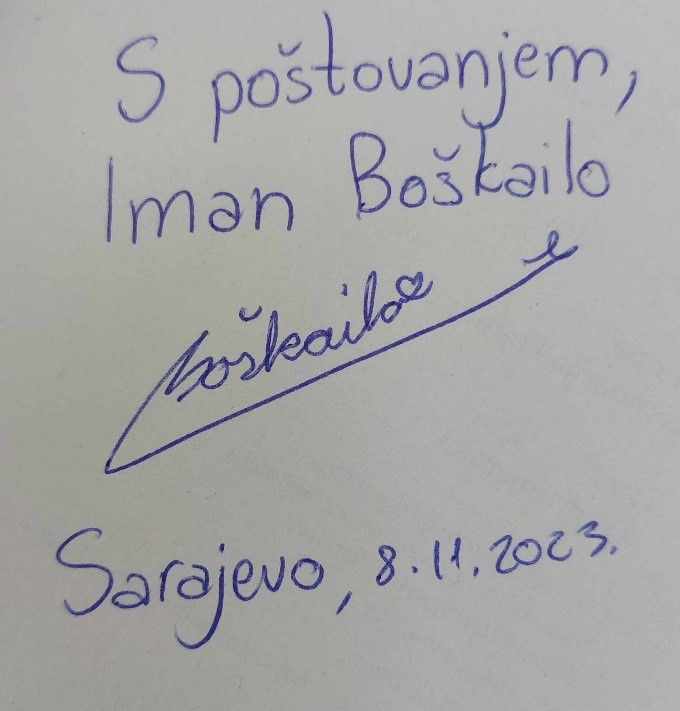 S poštovanjem,
Iman Boškailo
Boškailo
Sarajevo, 8.11.2023.